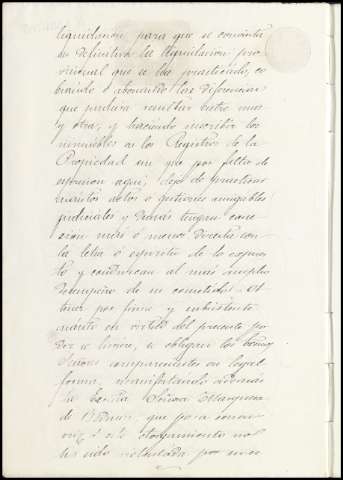 liquidacion para que se convierta
en definitiva la liquidacion pro-
visional que se ha practicado, co-
brando ó abonando las diferencias
que pudiera resultar entre una
y otra; y haciendo inscribir los
inmuebles en los Registros de la
Propiedad sin que por falta de
espresion aqui, deje de practicar
cuantos actos ó gestiones amigables
judiciales y demás tengan cone-
xion más ó menos directa con
la letra ó espiritu de lo expues-
to y conduzcan al más amplio
desempeño de su cometido. A te-
ner por firme y subsistente
cuanto en virtud del presente po-
der se hiciere, se obligan los
Señores comparecientes en legal
forma, manifestando además
la Señora Marquesa
de que para concur-
rir á este otorgamiento no
ha sido violentada por